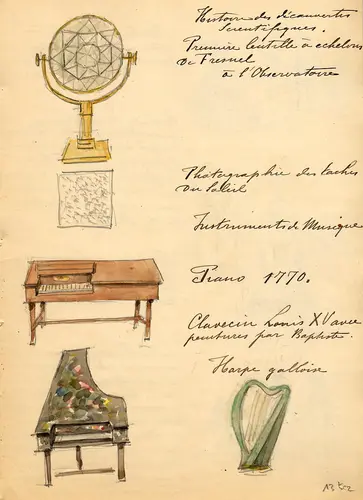 Histoire des découvertes
Scientifiques.
Première lentille à echelons
de Fresnel
à l'Observatoire
Photographie des taches
du Soleil
Instruments de Musique
Piano 1770.
Clavecin Louis XV avec
peintures par Baptiste.
Harpe galloise